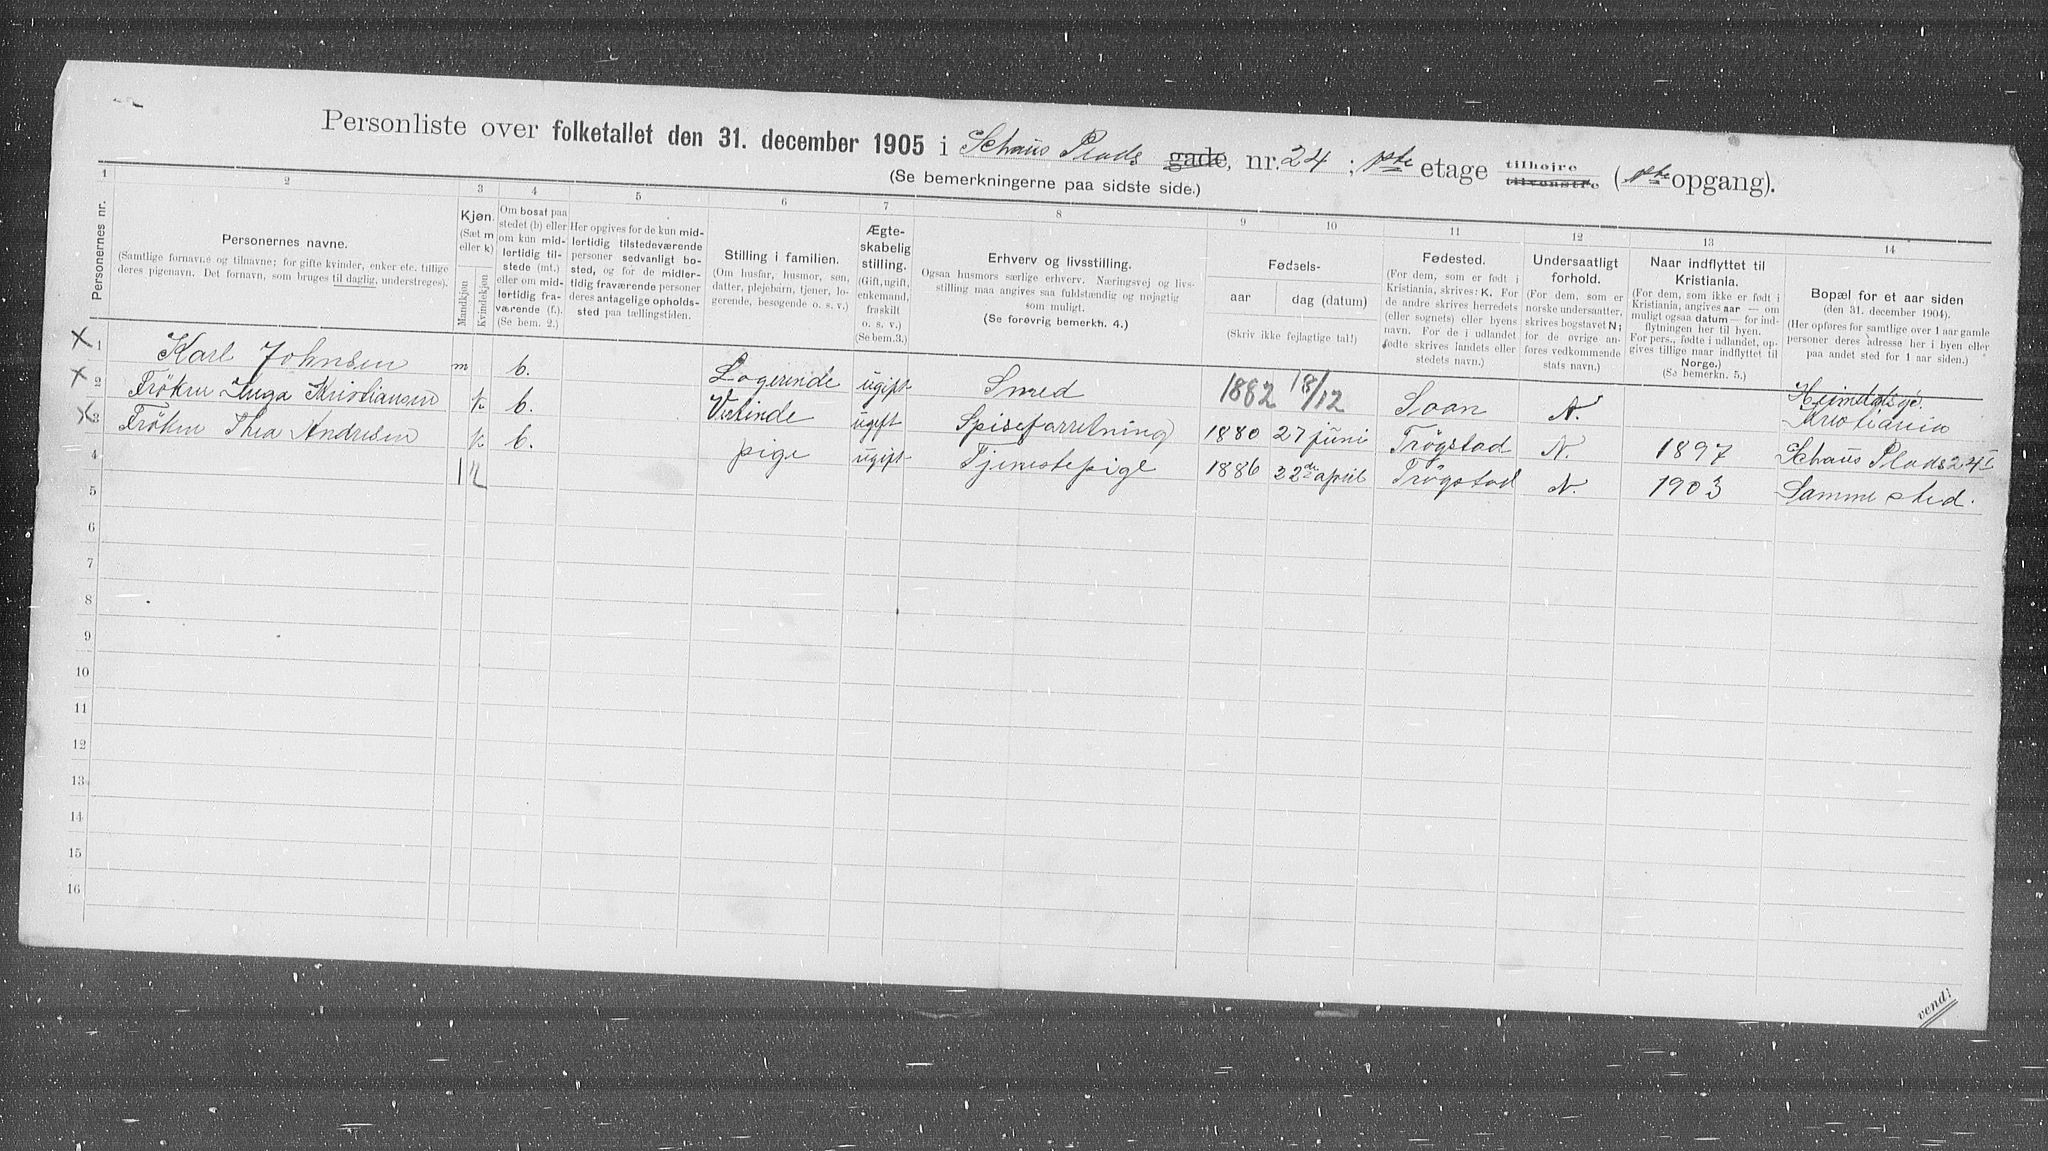 Personliste over folketallet den 31. december 1905 i Schous Plads gade, nr. 24 ; 1ste etage tilhøjre tilvenstre (1ste opgang).
(Se bemerkningerne paa sidste side.)
1 2 3 4 5 6 7 8 9 10 11 12 13 14
Personernes nr.
Personernes navne.
(Samtlige fornavne og tilnavne; for gifte kvinder, enker etc. tillige deres pigenavn. Det fornavn, som bruges til daglig, understreges).
Kjøn. (Sæt m eller k)
Mandkjøn
Kvindekjøn
Om bosat paa stedet (b) eller om kun midlertidig tilstede (mt.) eller om midlertidig fraværende (f.). (Se bem. 2.)
Her opgives for de kun midlertidig tilstedeværende personer sedvanligt bosted, og for de midlertidig fraværende personer deres antagelige opholdssted paa tællingstiden.
Stilling i familien.
(Om husfar, husmor, søn, datter, plejebarn, tjener, logerende, besøgende o. s. v.)
Ægteskabelig stilling.
(Gift, ugift, enkemand, fraskilt o. s. v.) (Se bem. 3.)
Erhverv og livsstilling.
Ogsaa husmors særlige erhverv. Næringsvej og livsstilling maa angives saa fuldstændig og nøjagtig som muligt.
(Se forøvrig bemerkn. 4.)
Fødsels-
aar dag (datum)
(Skriv ikke fejlagtige tal!)
Fødested.
(For dem, som er født i Kristiania, skrives: K. For de andre skrives herredets (eller sognets) eller byens navn. For de i udlandet fødte skrives landets eller stedets navn.)
Undersaatligt forhold.
(For dem, som er norske undersaatter, skrives bogstavet N; for de øvrige anføres vedkommende stats navn.)
Naar indflyttet til Kristiania.
(For dem, som ikke er født i Kristiania, angives aar — om muligt ogsaa datum — for indflytningen her til byen. For pers., fødte i udlandet, opgives tillige naar indflyttet til Norge.)
(Se bemerkn. 5.)
Bopæl for et aar siden
(den 31. december 1904).
(Her opføres for samtlige over 1 aar gamle personer deres adresse her i byen eller paa andet sted for 1 aar siden.)
X 1 Karl Johnsen m b. Logerende ugift Smed 1882 18/12 Soon N. Heimdalsgd. Kristiania
X 2 Frøken Inga Kristiansen k b. Vertinde ugift Spiseforretning 1880 27 juni Trøgstad N. 1897 Schous Plads 24 I
X 3 Frøken Thea Andresen k b. pige ugift Tjenestepige 1886 22de april Trøgstad N. 1903 Samme sted.
4 1 2
5
6
7
8
9
10
11
12
13
14
15
16
vend!